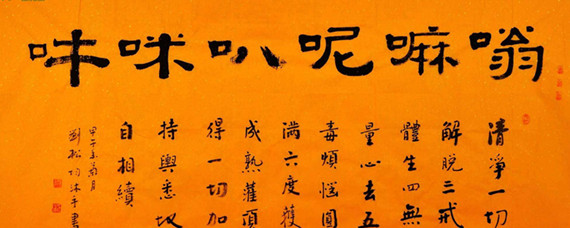 嗡嘛呢叭咪吽
清淨一切
解脫三戒
體生四無
量心去五
毒煩惱圓
滿六度獲
成熟灌頂
得一切加
持與悉
自相續
甲午
沐手書